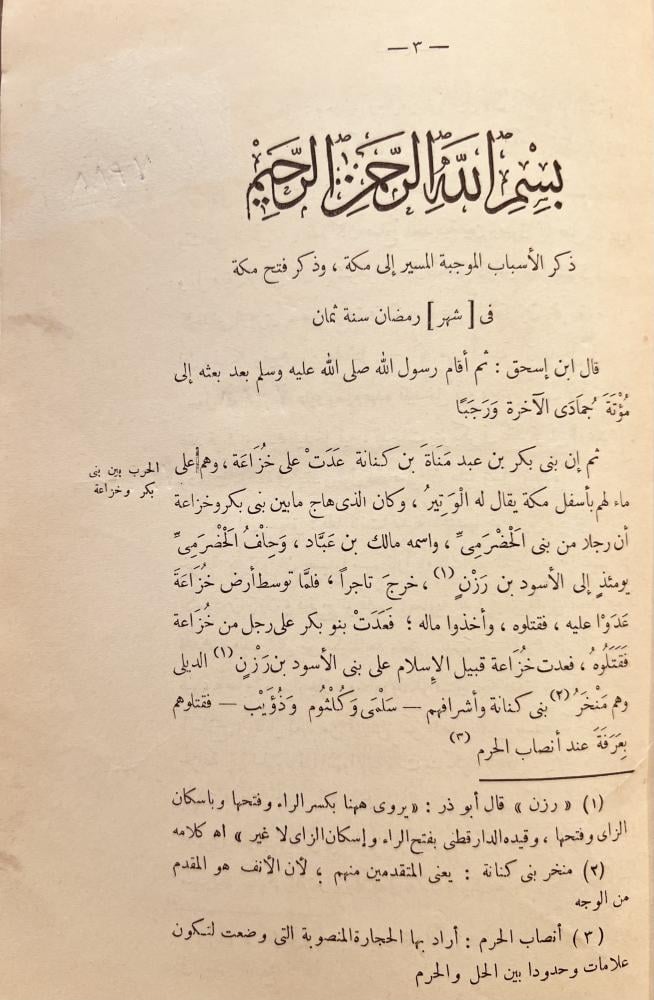 — ٣ —
بِسْمِ اللَّهِ الرَّحْمَنِ الرَّحِيمِ
ذكر الأسباب الموجبة المسير إلى مكة ، وذكر فتح مكة
فى [ شهر ] رمضان سنة ثمان
قال ابن إسحق : ثم أقام رسول الله صلى الله عليه وسلم بعد بعثه إلى
مُؤْتَةَ جُمَادَى الْآخرة وَرَجَبًا
ثم إن بنى بكر بن عبد مَنَاةَ بن كنانة عَدَتْ على خُزَاعَة ، وهم على
الحرب بين بنى
بكر وخزاعة
ماء لهم بأسفل مكة يقال له الْوَتِيرُ ، وكان الذى هاج مابين بنى بكر وخزاعة
أن رجلا من بنى الْحَضْرَمِىِّ ، واسمه مالك بن عَبَّاد ، وَحِلْفُ الْحَضْرَمِىِّ
يومئذٍ إلى الأسود بن رَزْنٍ (١) ، خرجَ تاجراً ، فلمَّا توسط أرض خُزَاعَةَ
عَدَوْا عليه ، فقتلوه ، وأخذوا ماله ؛ فَعَدَتْ بنو بكر على رجل من خُزَاعة
فَقَتَلُوهُ ، فعدت خُزَاعة قبيل الإِسلام على بنى الأسود بن رَزْنٍ (١) الديلى
وهم مَنْخَرُ (٢) بنى كنانة وأشرافهم — سَلْمَى وَكُلْثُوم وَذُؤَيْب — فقتلوهم
بِعَرَفَةَ عند أنصاب الحرم (٣)
(١) « رزن » قال أبو ذر : « يروى ههنا بكسر الراء وفتحها وباسكان
الزاى وفتحها ، وقيده الدارقطنى بفتح الراء وإسكان الزاى لا غير » اھ كلامه
(٢) منخر بنى كنانة : يعنى المتقدمين منهم ؛ لأن الأنف هو المقدم
من الوجه
(٣) أنصاب الحرم : أراد بها الحجارة المنصوبة التى وضعت لتكون
علامات وحدودا بين الحل والحرم